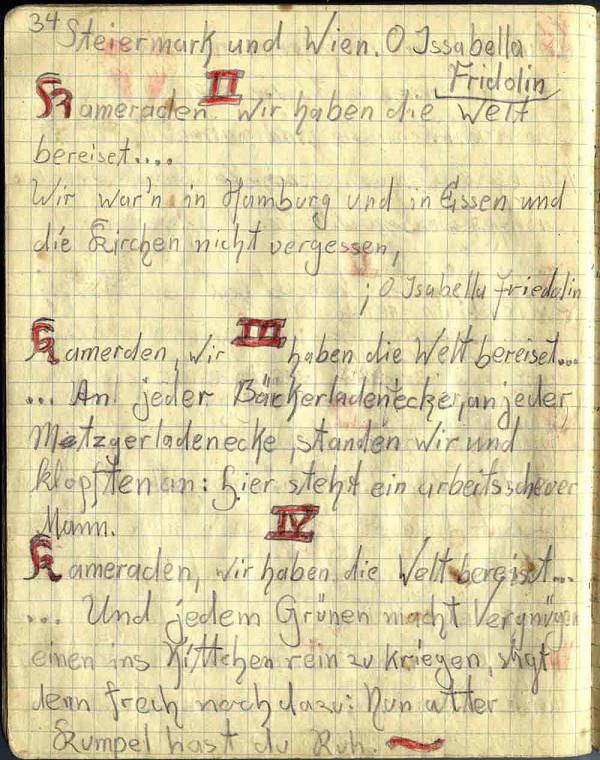 34
Steiermark und Wien. O Issabella
Fridolin
II
Kameraden wir haben die Welt
bereiset....
Wir war'n in Hamburg und in Eissen und
die Kirchen nicht vergessen,
; O Isabella friedolin
III
Kamerden, wir haben die Welt bereiset...
... An jeder Bäckerladenecke, an jeder
Metzgerladenecke, standen wir und
klopften an: hier steht ein arbeitsscheuer
Mann.
IV
Kameraden, wir haben die Welt bereist...
... Und jedem Grünen macht Vergnügen
einen ins Kittchen rein zu kriegen, sagt
denn frech noch dazu: Nun alter
Kumpel hast du Ruh.